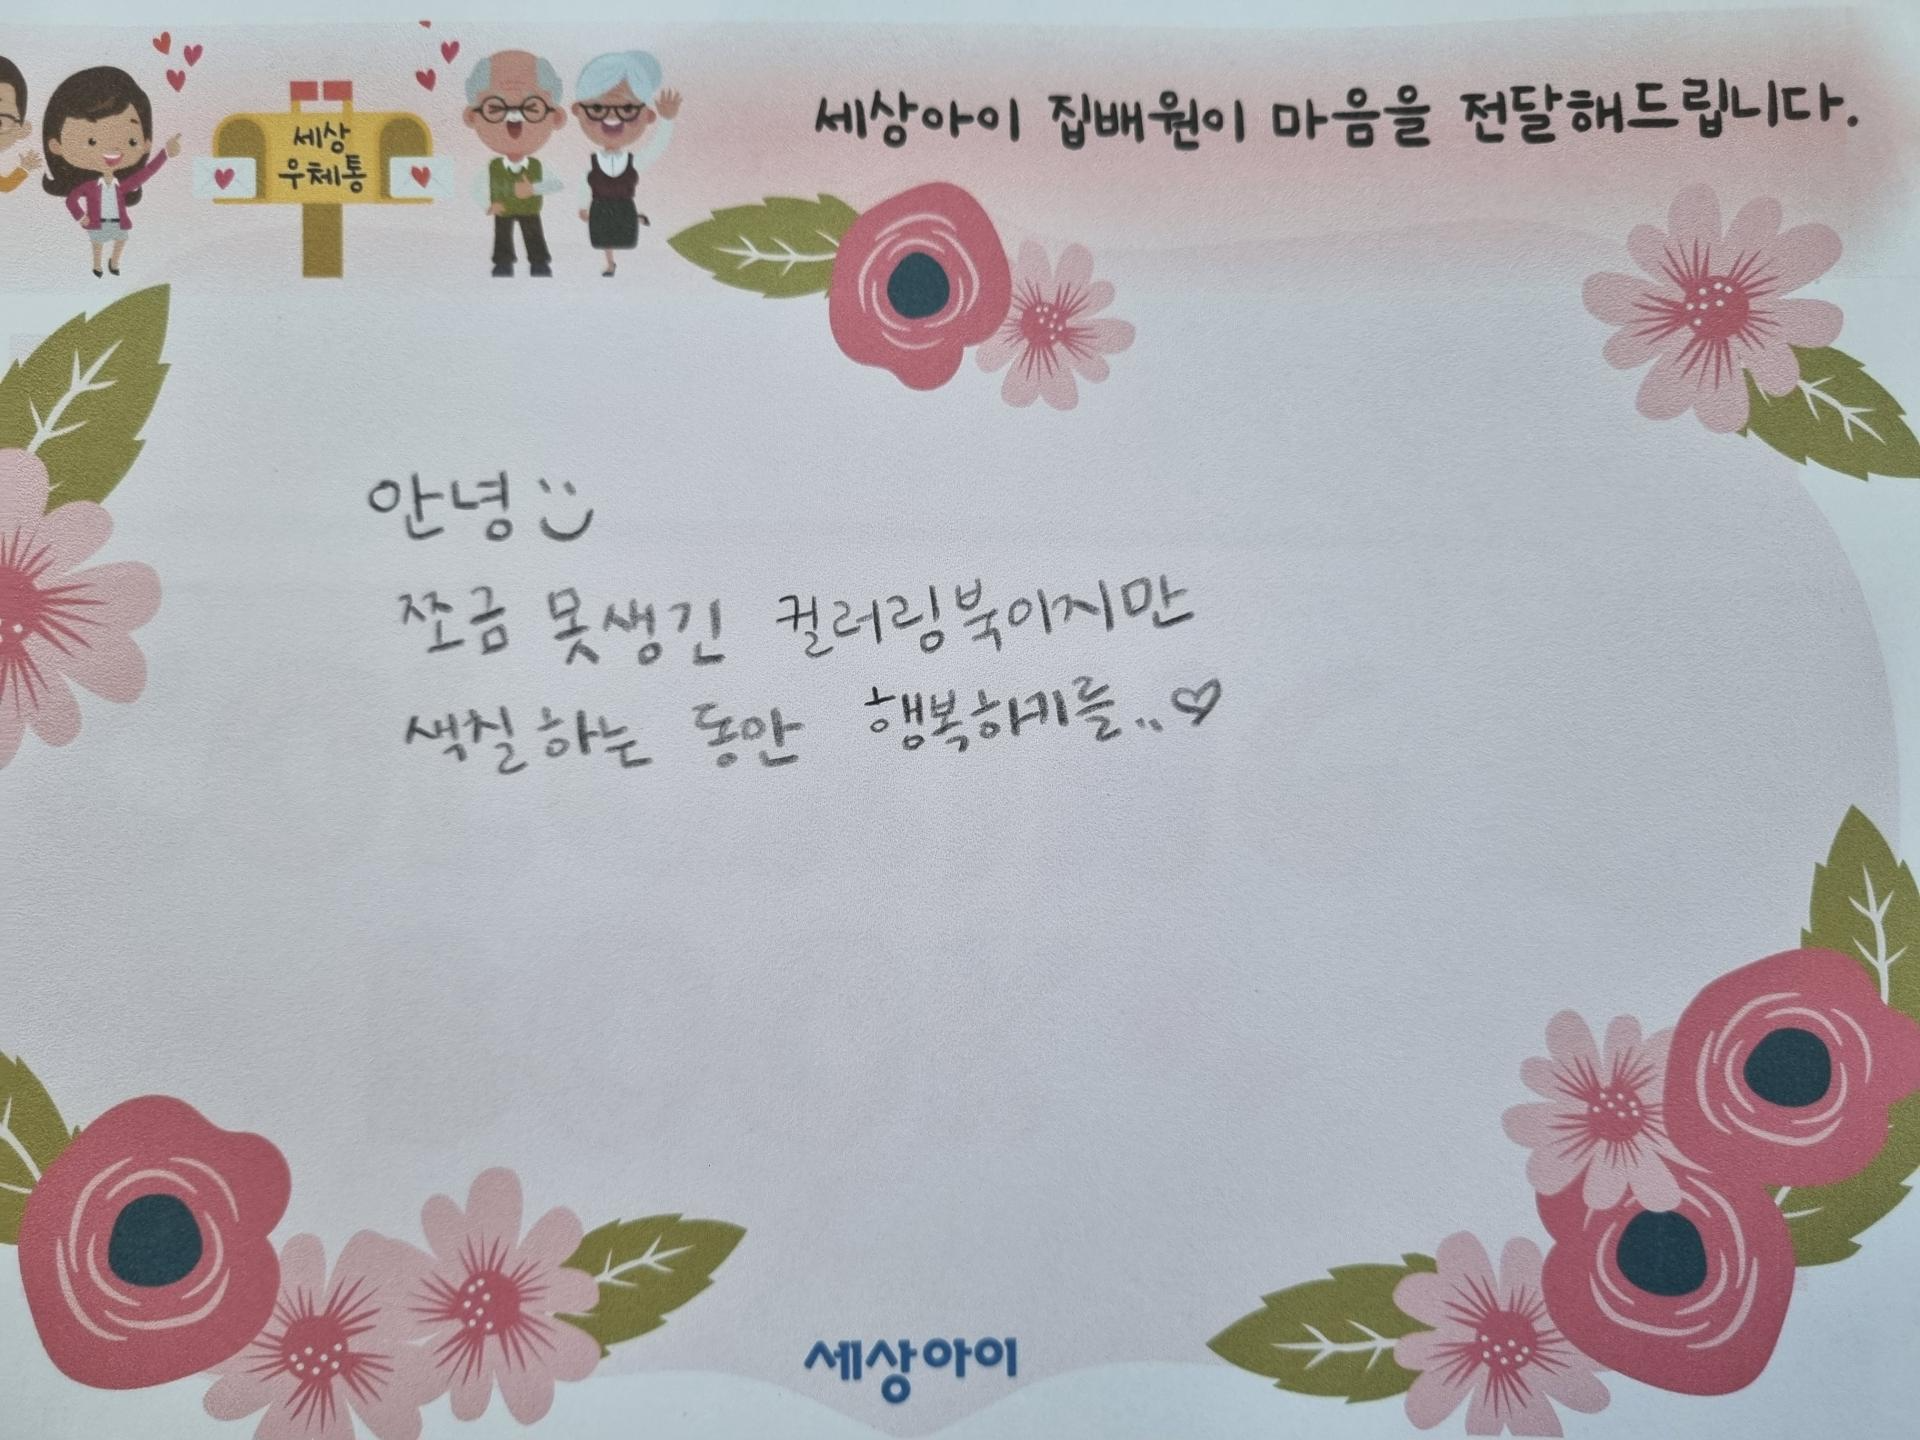 세상아이 집배원이 마음을 전달해드립니다.
세상
우체통
안녕
쪼금 못생긴 컬러링북이지만
색칠하는 동안 행복하기를.. ♡
세상아이